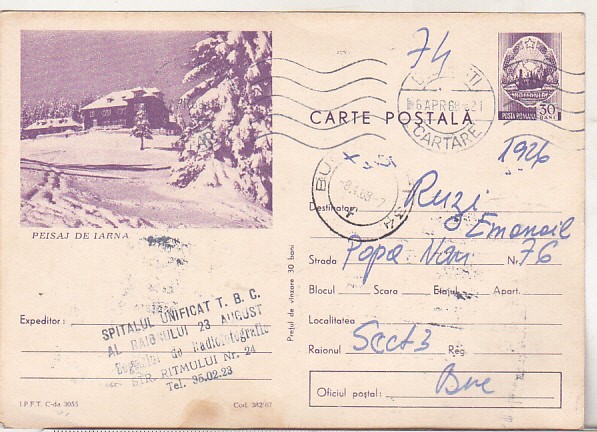 74
POSTA ROMANA
30
BANI
CARTE POȘTALĂ
6 APR 68
CARTARE
1926
PEISAJ DE IARNA
Destinatar
Ruzi
Emanoil
Strada Popa Nan Nr. 76
Blocul Scara Etajul Apart.
Localitatea
Raionul Sect 3 Reg.
Buc
Oficiul poștal:
Prețul de vînzare 30 bani
Expeditor:
SPITALUL UNIFICAT T. B. C.
AL RAIONULUI 23 AUGUST
de Radiofotografie
STR. RITMULUI Nr. 24
Tel. 35.02.23
I.P.F.T. C-da 3055
Cod. 382/67